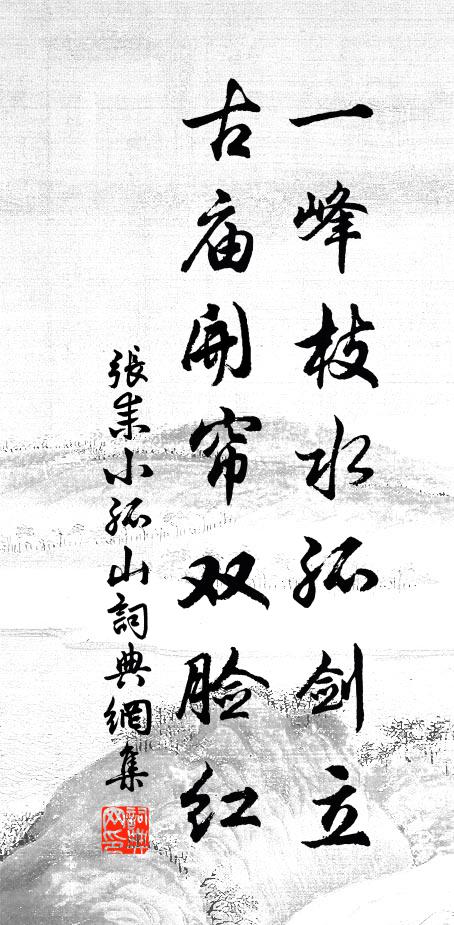 一峰枝水孤剑立
古庙开帘双脸红
張耒小孤山詞典網集